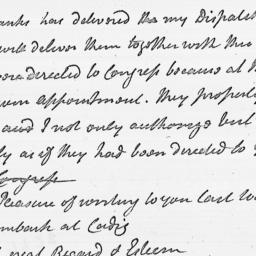 anks has delivered tha my Dispatch
will deliver them together with this
were directed to Congress because at
appointment. They properly
and I not only authorize but
ly as if they had been directed to
Congress
Pleasure of writing to you last
embark at Cadiz
Regard & Esteem